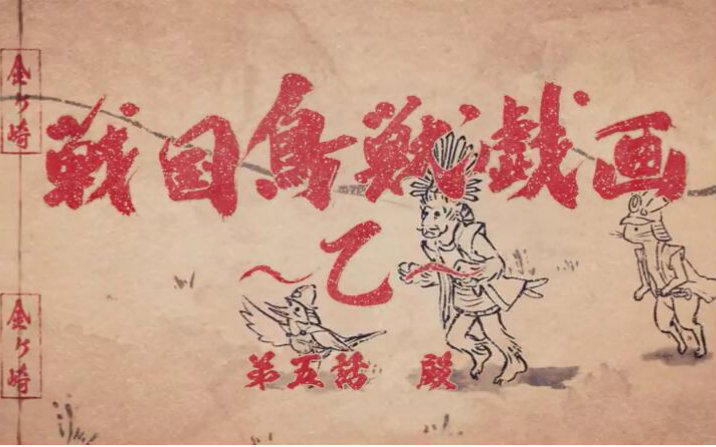 金ヶ崎
戦国鳥獣戯画
～乙～
第五話 殿
金ヶ崎